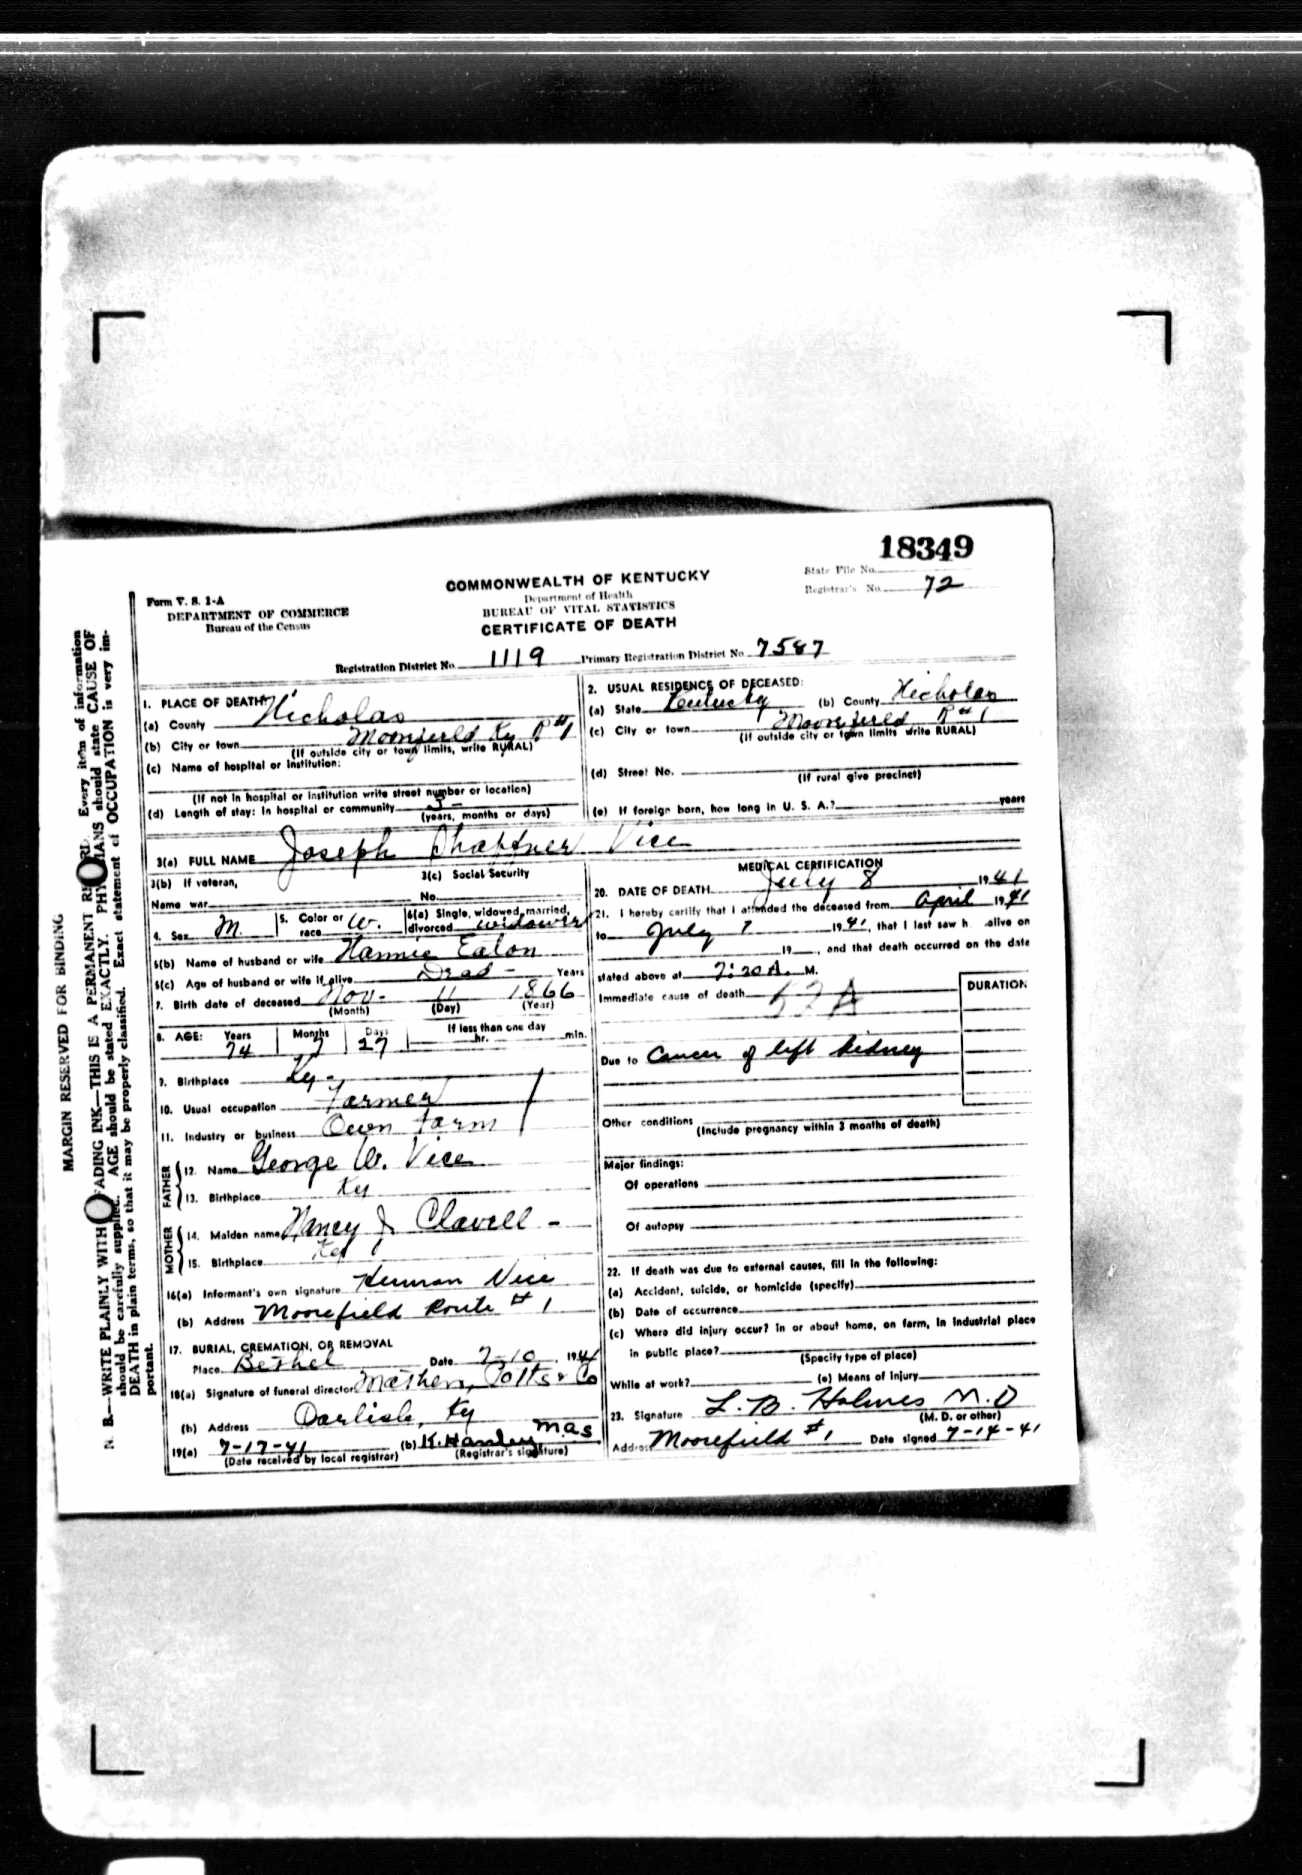 18349
State File No.
Registrar's No. 72
COMMONWEALTH OF KENTUCKY
Department of Health
BUREAU OF VITAL STATISTICS
CERTIFICATE OF DEATH
Form V. S. 1-A
DEPARTMENT OF COMMERCE
Bureau of the Census
Registration District No. 1119 Primary Registration District No. 7587
MARGIN RESERVED FOR BINDING
N. B.—WRITE PLAINLY WITH FADING INK—THIS IS A PERMANENT RECORD. Every item of information
should be carefully supplied. AGE should be stated EXACTLY. PHYSICIANS should state CAUSE OF
DEATH in plain terms, so that it may be properly classified. Exact statement of OCCUPATION is very im-
portant.
1. PLACE OF DEATH:
(a) County Nicholas
(b) City or town Moorefield Ky R#1
(If outside city or town limits, write RURAL)
(c) Name of hospital or institution:
(If not in hospital or institution write street number or location)
(d) Length of stay: In hospital or community
(years, months or days)
2. USUAL RESIDENCE OF DECEASED:
(a) State Kentucky (b) County Nicholas
(c) City or town Moorefield R#1
(If outside city or town limits write RURAL)
(d) Street No.
(If rural give precinct)
(e) If foreign born, how long in U. S. A.? years
3(a) FULL NAME Joseph Vice
3(b) If veteran,
Name war
3(c) Social Security
No.
4. Sex M. 5. Color or race W. 6(a) Single, widowed, married, divorced widower
6(b) Name of husband or wife Eaton
6(c) Age of husband or wife if alive Dead - Years
7. Birth date of deceased Nov- 11 1866
(Month) (Day) (Year)
8. AGE: Years Months Days If less than one day
74 7 27 hr. min.
9. Birthplace Ky-
10. Usual occupation Farmer
11. Industry or business Own farm
FATHER
12. Name George W. Vice
13. Birthplace Ky
MOTHER
14. Maiden name Nancy J. Clavell -
15. Birthplace Ky
16(a) Informant's own signature Herman Vice
(b) Address Moorefield Route # 1
17. BURIAL, CREMATION, OR REMOVAL
Place Bethel Date 7-10, 1941
18(a) Signature of funeral director Mathers, Potts & Co
(b) Address Carlisle, Ky
19(a) 7-17-41 (b) K. Hanley mas
(Date received by local registrar) (Registrar's signature)
MEDICAL CERTIFICATION
20. DATE OF DEATH July 8 1941
21. I hereby certify that I attended the deceased from April 1941
to July 7 1941, that I last saw h alive on
19 , and that death occurred on the date
stated above at 7:20 A. M.
Immediate cause of death 52A
DURATION
Due to Cancer of left kidney
Other conditions
(Include pregnancy within 3 months of death)
Major findings:
Of operations
Of autopsy
22. If death was due to external causes, fill in the following:
(a) Accident, suicide, or homicide (specify)
(b) Date of occurrence
(c) Where did injury occur? In or about home, on farm, in industrial place
in public place?
(Specify type of place)
While at work? (e) Means of Injury
23. Signature L. B. Holmes M. D
(M. D. or other)
Address Moorefield #1 Date signed 7-14-41